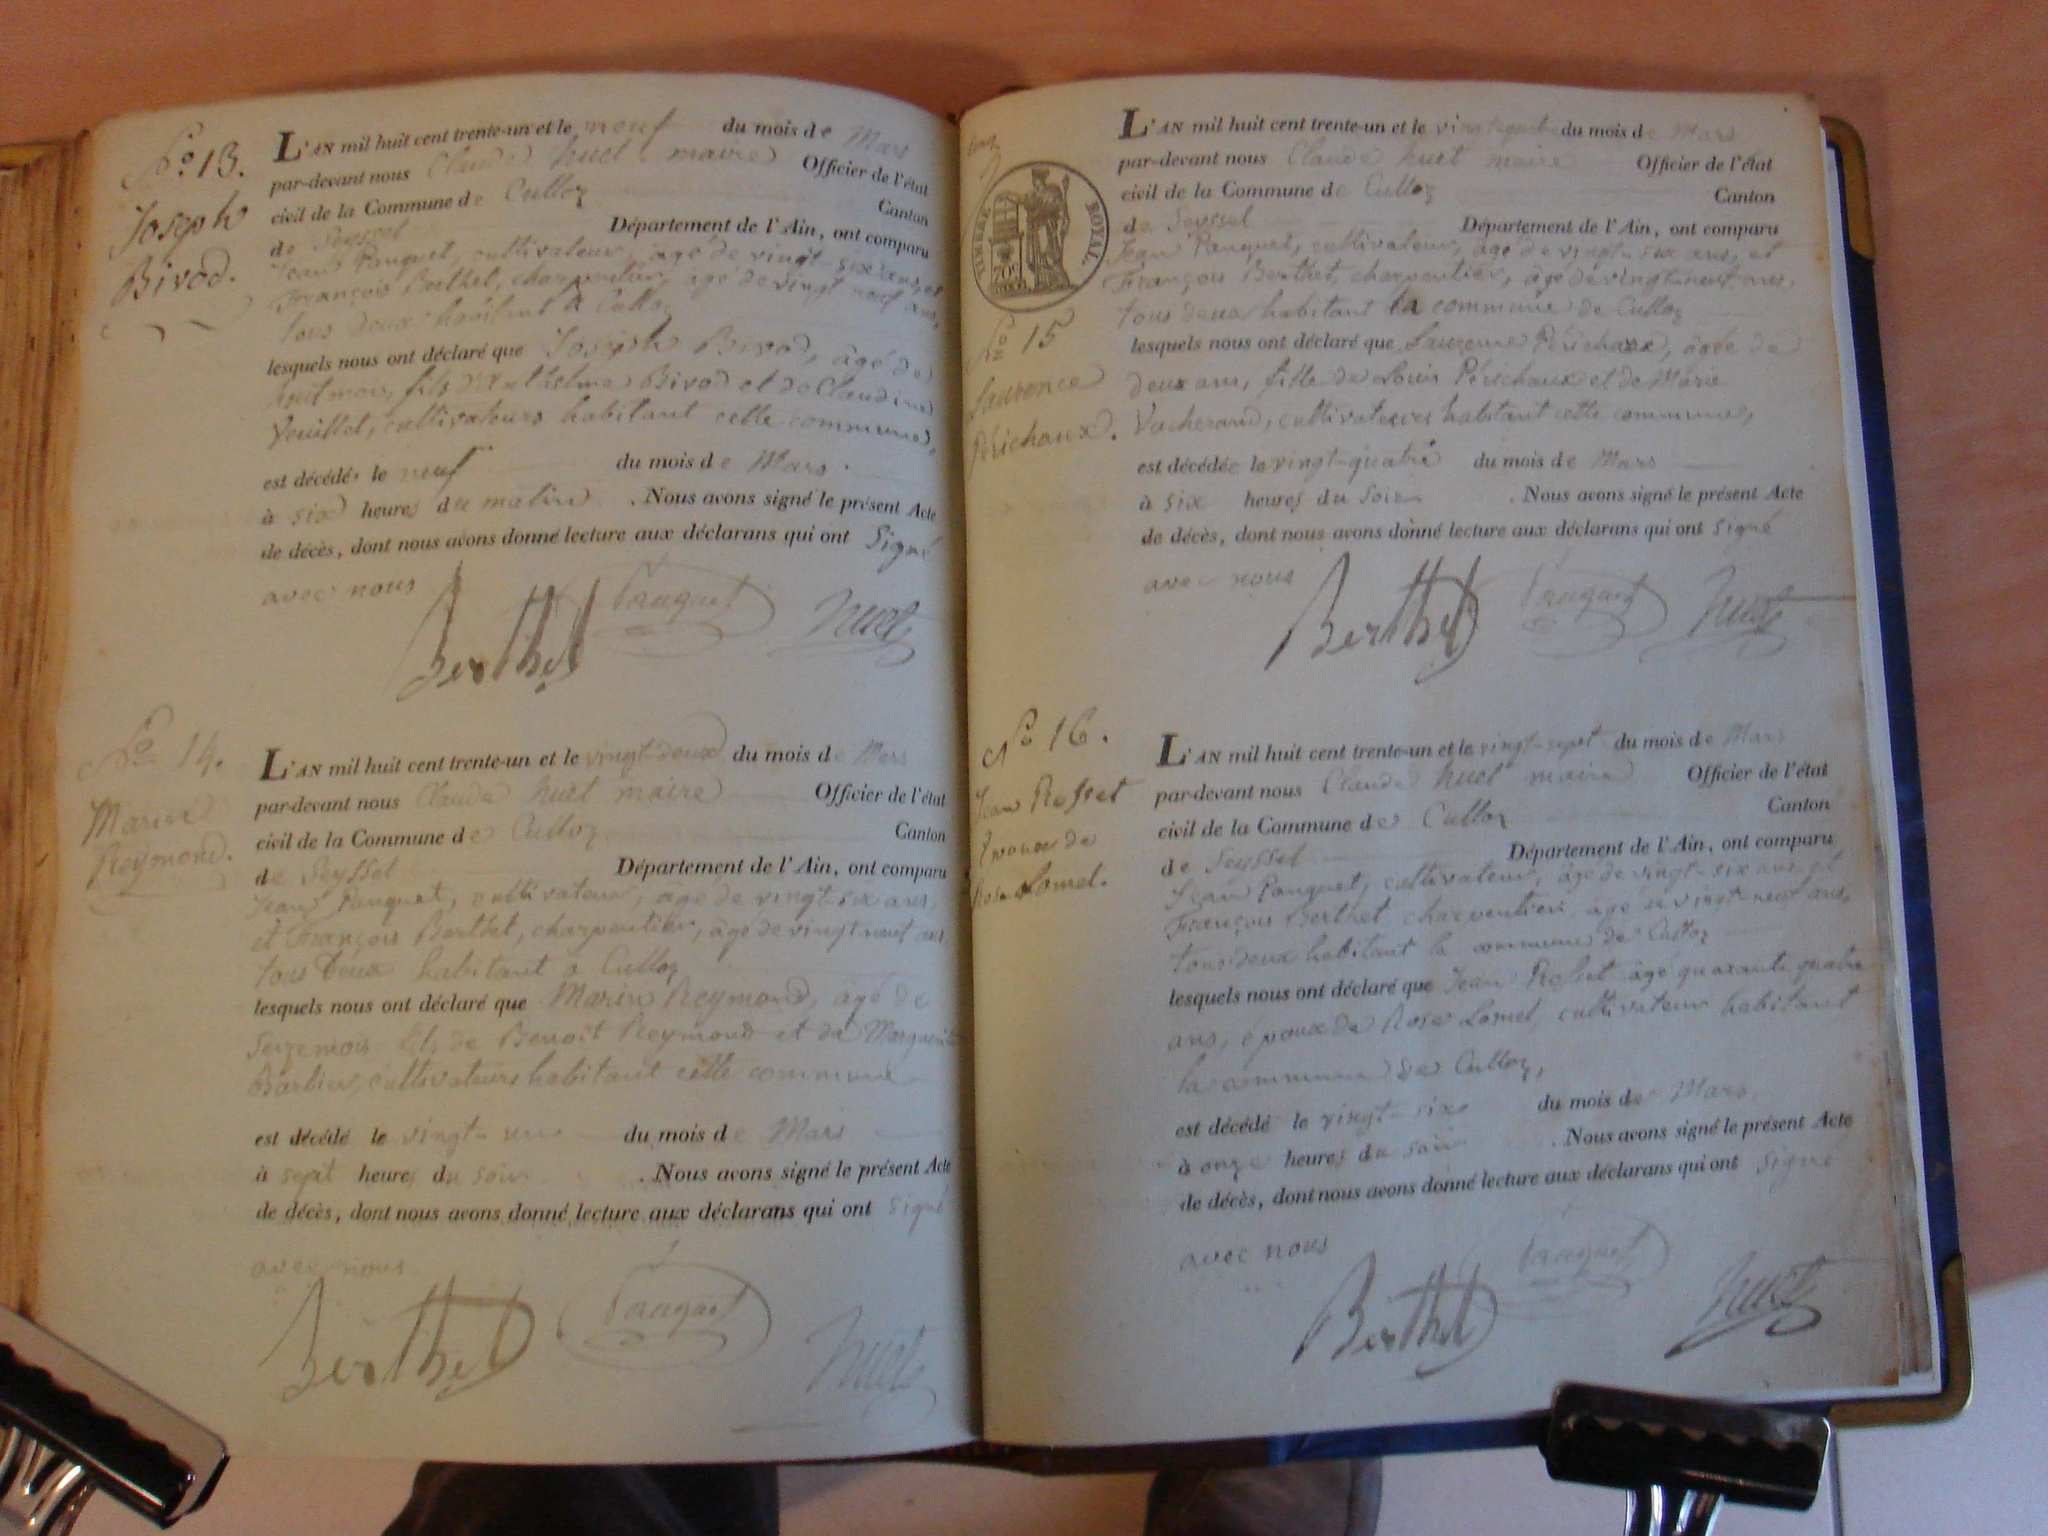 N.o 13.
Joseph
Bivod.
L'AN mil huit cent trente-un et le neuf du mois de Mars
par-devant nous Claude huet maire Officier de l'état
civil de la Commune de Culloz Canton
de Seyssel Département de l'Ain, ont comparu
Jean Pauquet, cultivateur, âgé de vingt-six ans, et
François Berthet, charpentier, âgé de vingt neuf ans,
tous deux habitant à Culloz
lesquels nous ont déclaré que Joseph Bivod, âgé de
huit mois, fils d'Anthelme Bivod et de Claudine
Veuillet, cultivateurs habitant cette commune,
est décédé le neuf du mois de Mars.
à six heures du matin. Nous avons signé le présent Acte
de décès, dont nous avons donné lecture aux déclarans qui ont signé
avec nous
Berthet Pauquet huet
N.o 14.
Marin
Reymond.
L'AN mil huit cent trente-un et le vingt-deux du mois de Mars
par-devant nous Claude huet maire Officier de l'état
civil de la Commune de Culloz Canton
de Seyssel Département de l'Ain, ont comparu
Jean Pauquet, cultivateur, âgé de vingt-six ans,
et François Berthet, charpentier, âgé de vingt neuf ans,
tous deux habitant à Culloz
lesquels nous ont déclaré que Marin Reymond, âgé de
seize mois fils de Benoît Reymond et de Marguerite
Barbier, cultivateurs habitant cette commune
est décédé le vingt-un du mois de Mars
à sept heures du soir. Nous avons signé le présent Acte
de décès, dont nous avons donné lecture aux déclarans qui ont signé
avec nous
Berthet Pauquet huet
TIMBRE ROYAL.
70c
N.o 15
Laurence
Périchaux.
L'AN mil huit cent trente-un et le vingt-quatre du mois de Mars
par-devant nous Claude huet maire Officier de l'état
civil de la Commune de Culloz Canton
de Seyssel Département de l'Ain, ont comparu
Jean Pauquet, cultivateur, âgé de vingt-six ans, et
François Berthet, charpentier, âgé de vingt-neuf ans,
tous deux habitant la commune de Culloz
lesquels nous ont déclaré que Laurence Périchaux, âgée de
deux ans, fille de Louis Périchaux et de Marie
Vacherand, cultivateurs habitant cette commune,
est décédée le vingt-quatre du mois de Mars
à six heures du soir. Nous avons signé le présent Acte
de décès, dont nous avons donné lecture aux déclarans qui ont signé
avec nous
Berthet Pauquet huet
N.o 16.
Jean Rosset
époux de
Rose Lomel.
L'AN mil huit cent trente-un et le vingt-sept du mois de Mars
par-devant nous Claude huet maire Officier de l'état
civil de la Commune de Culloz Canton
de Seyssel Département de l'Ain, ont comparu
Jean Pauquet, cultivateur, âgé de vingt-six ans et
François Berthet charpentier, âgé de vingt-neuf ans,
tous deux habitant la commune de Culloz
lesquels nous ont déclaré que Jean Rosset âgé quarante quatre
ans, époux de Rose Lomel, cultivateur habitant
la commune de Culloz,
est décédé le vingt-six du mois de Mars.
à onze heures du soir. Nous avons signé le présent Acte
de décès, dont nous avons donné lecture aux déclarans qui ont signé
avec nous
Berthet Pauquet huet